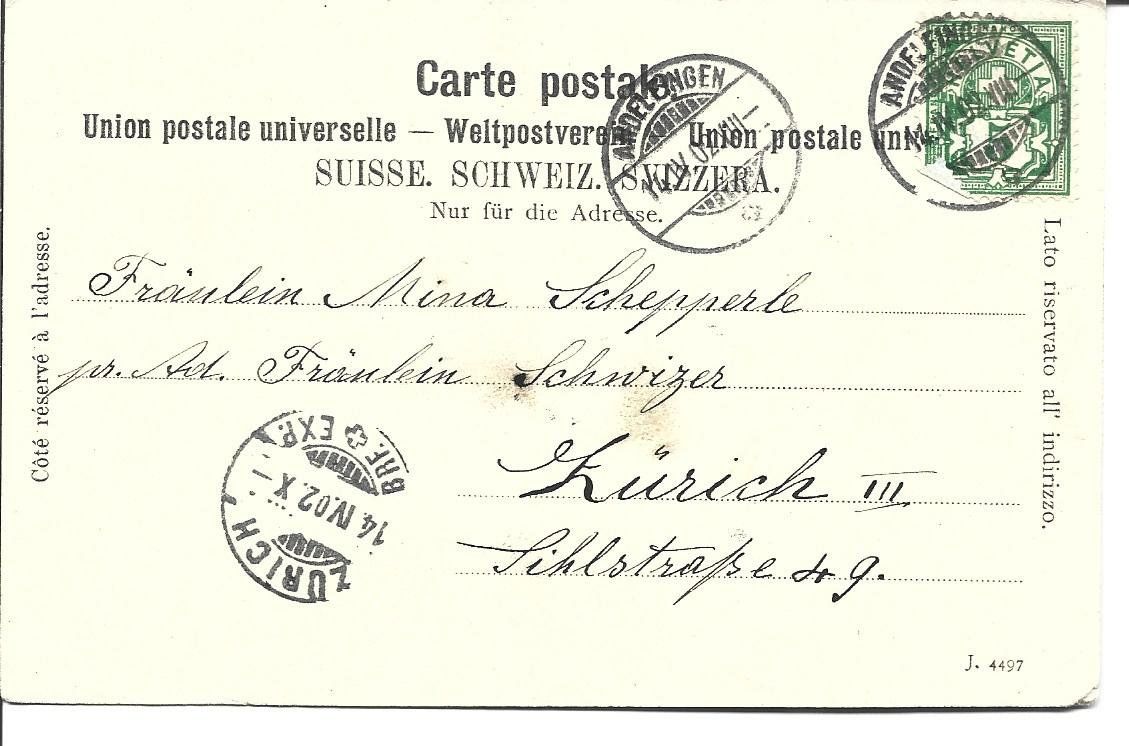 Carte postale.
Union postale universelle — Weltpostverein — Union postale univ
SUISSE. SCHWEIZ. SVIZZERA.
Nur für die Adresse.
ANDELFINGEN
14.IV.02.VIII—
ANDELFINGEN
14.IV.02.VIII
HELVETIA
Côté réservé à l'adresse.
Lato riservato all' indirizzo.
Fräulein Mina Schepperle
pr. Ad. Fräulein Schwizer
Zürich III
Sihlstraße 49.
ZÜRICH
14.IV.02.X—
BRF. EXP.
J. 4497